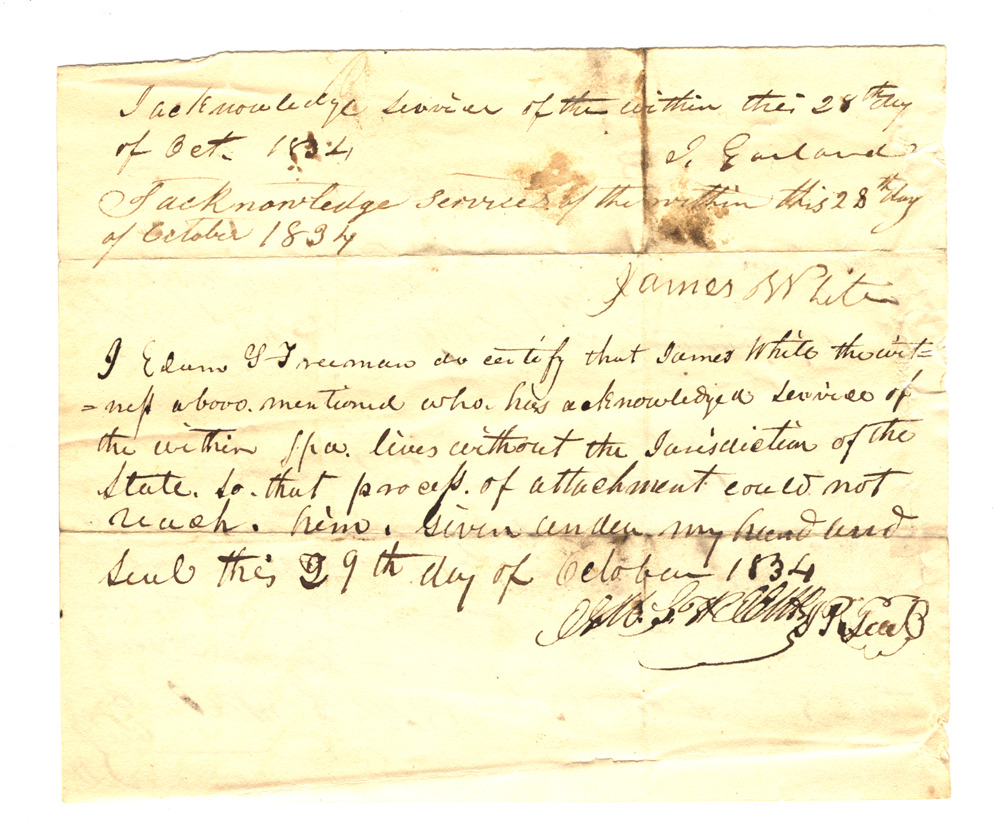 I acknowledge service of the within this 28th day
of Oct. 1834 J. Garland
I acknowledge service of the within this 28th day
of October 1834
James White
I Edwm G Freeman do certify that James White the wit=
=ness above. mentioned who. has acknowledged service of
the within spa. lives without the Jurisdiction of the
State. so. that process. of attachment could not
reach. him. Given under my hand and
seal this 29th day of October 1834
Seal